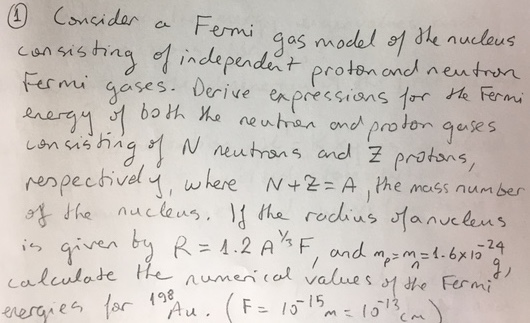 ① Consider a Fermi gas model of the nucleus
consisting of independent proton and neutron
Fermi gases. Derive expressions for the Fermi
energy of both the neutron and proton gases
consisting of N neutrons and Z protons,
respectively, where N+Z=A, the mass number
of the nucleus. If the radius of a nucleus
is given by R = 1.2 A^{1/3} F, and m_p = m_n = 1.6×10^{-24} g,
calculate the numerical values of the Fermi
energies for ^{198}Au. (F = 10^{-15} m = 10^{-13} cm)